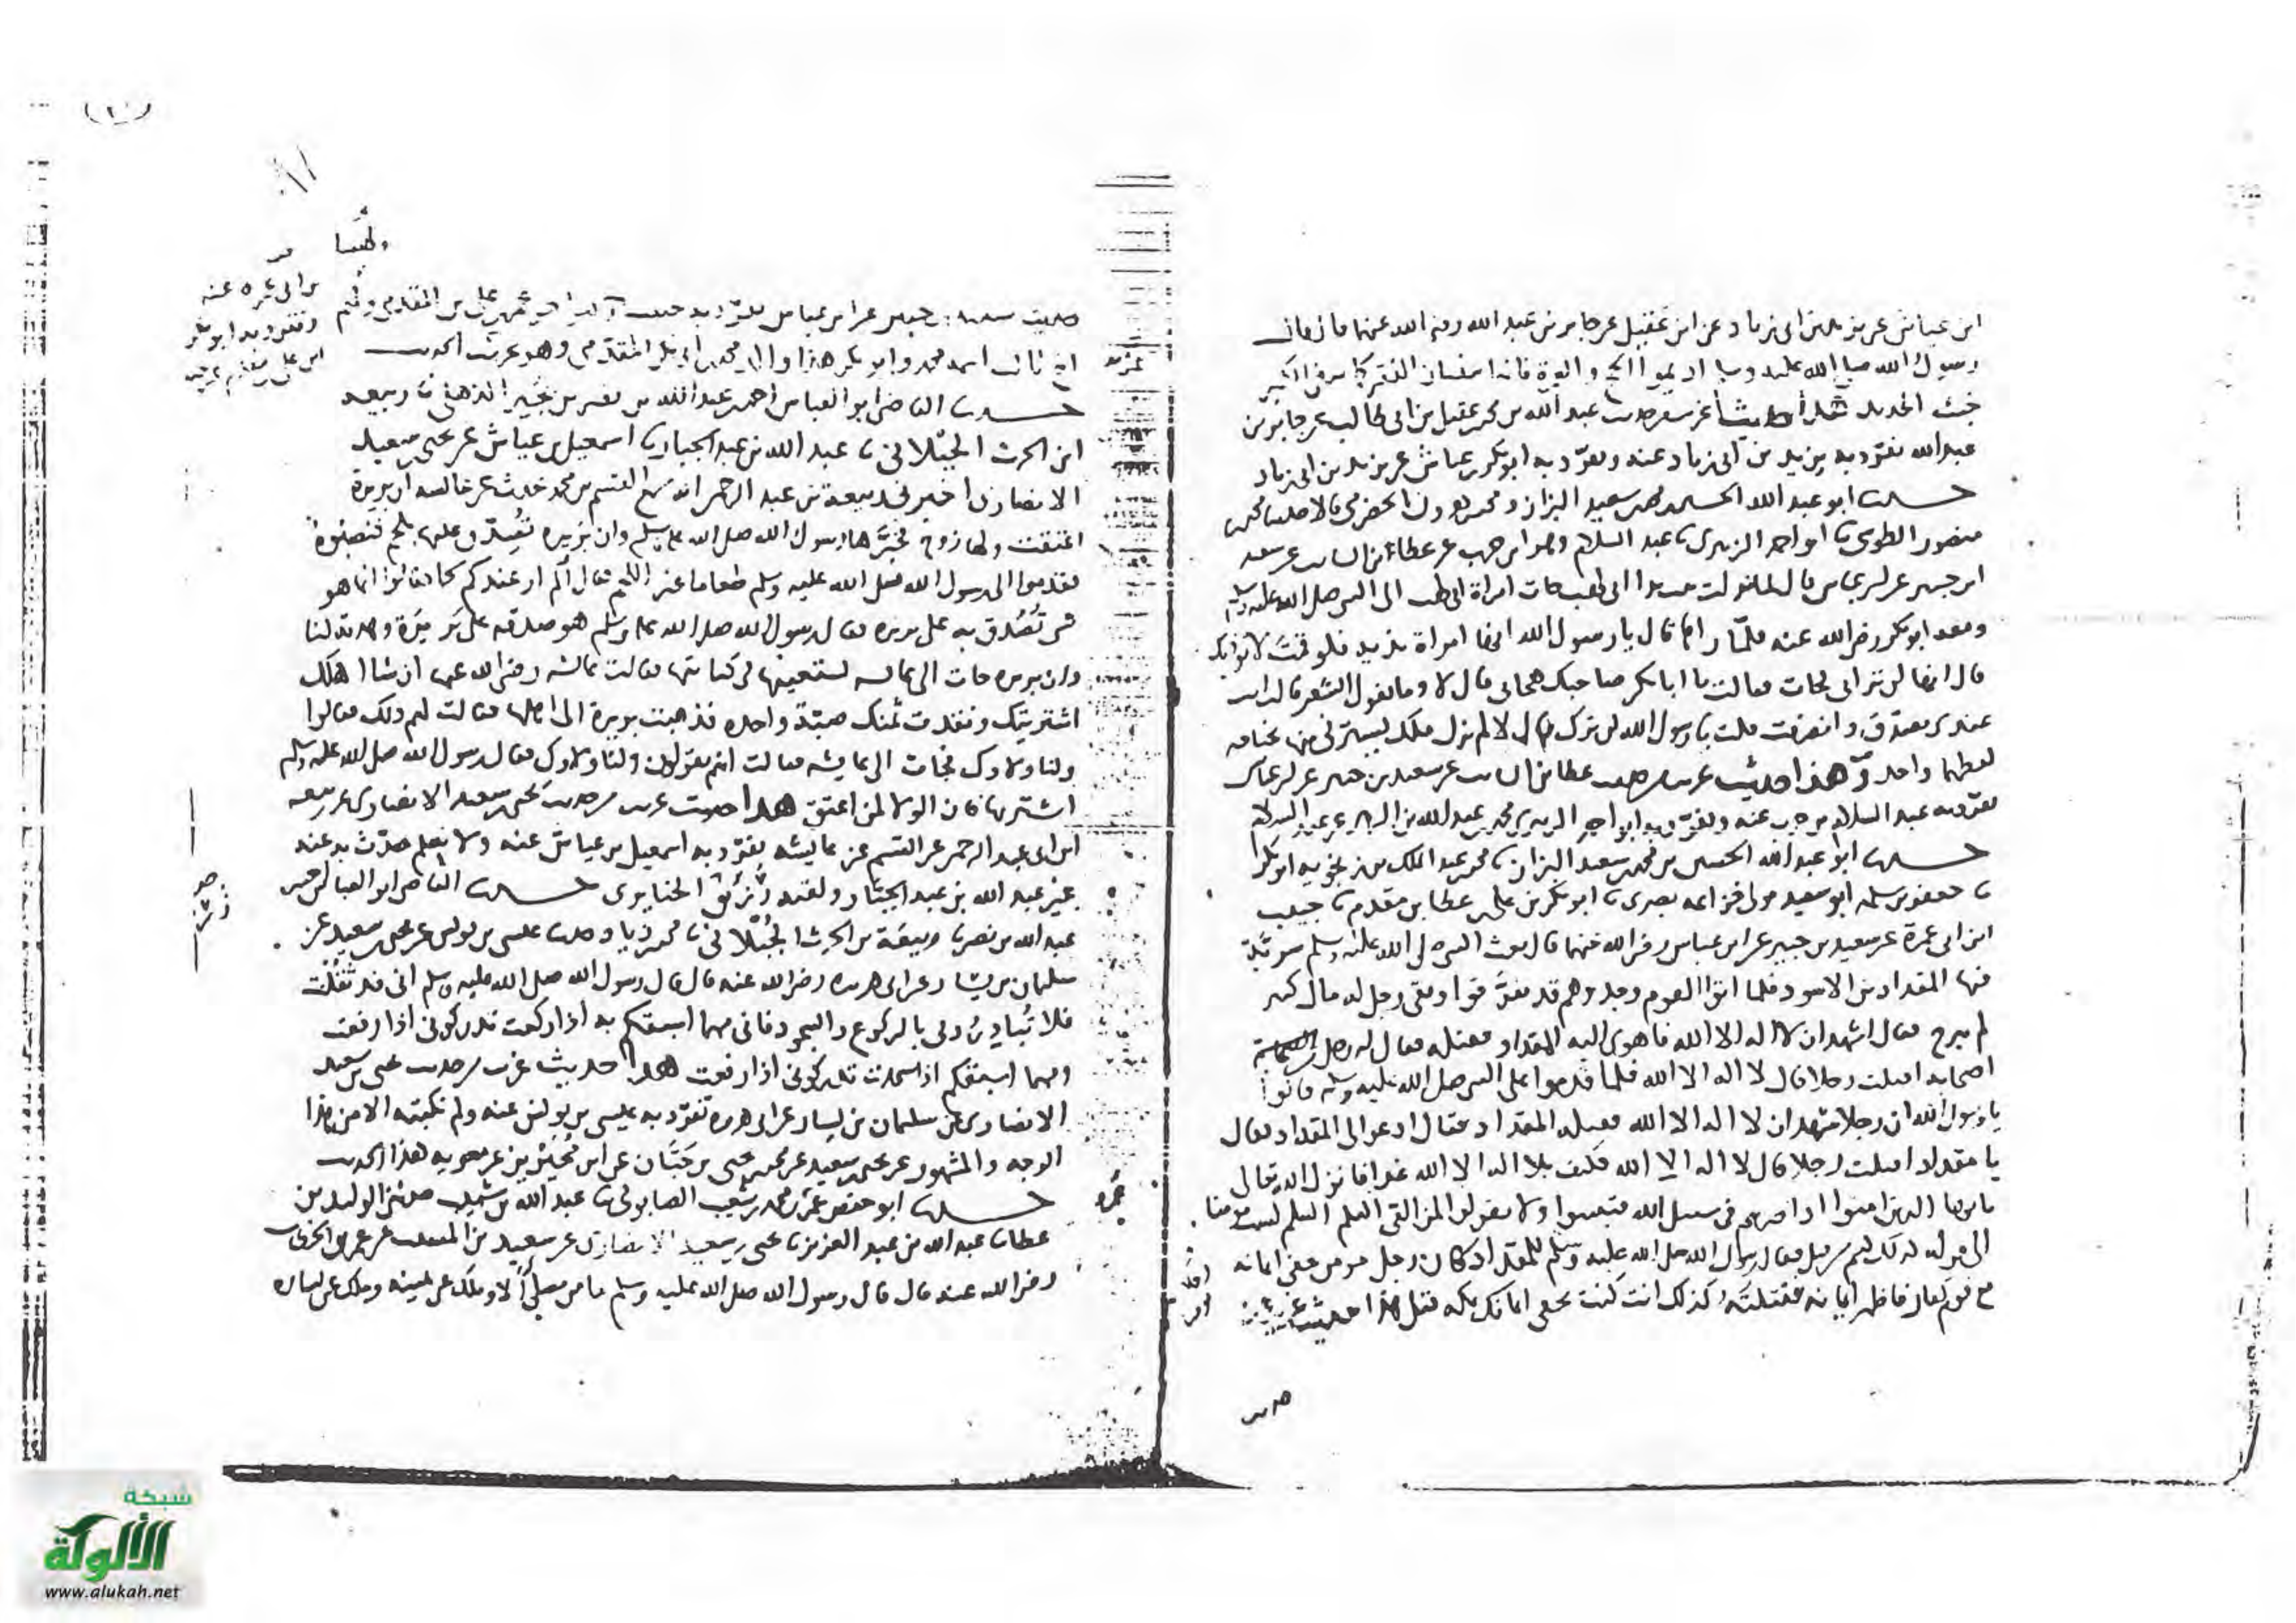 ابن عياش عن يزيد بن ابى زياد عن ابن عقيل عن جابر بن عبد الله رضى الله عنهما قال قال
رسول الله صلى الله عليه وسلم اديموا الحج والعمرة فانهما ينفيان الفقر كما ينفى الكير
خبث الحديد هذا حديث غريب من حديث عبد الله بن محمد بن عقيل بن ابى طالب عن جابر بن
عبد الله تفرد به يزيد بن ابى زياد عنه وتفرد به ابو بكر بن عياش عن يزيد بن ابى زياد
حدثنا ابو عبد الله الحسين بن محمد بن سعيد البزاز ومحمد بن هرون الحضرمى قالا حدثنا محمد بن
منصور الطوسى نا ابو احمد الزبيرى نا عبد السلام وهو ابن حرب عن عطاء بن السايب عن سعيد
ابن جبير عن ابن عباس قال لما نزلت تبت يدا ابى لهب جات امراة ابى لهب الى النبى صلى الله عليه وسلم
ومعه ابو بكر رضى الله عنه فلما راها قال يا رسول الله انها امراة بذيه فلو قمت لا توذيك
قال انها لن ترانى فجات فقالت يا ابا بكر صاحبك هجانى قال لا وما يقول الشعر قالت انت
عندى مصدق وانصرفت قلت يا رسول الله لم ترك قال لا لم يزل ملك يسترنى منها بجناحه
لفظهما واحد وهذا حديث غريب من حديث عطا بن السايب عن سعيد بن جبير عن ابن عباس
تفرد به عبد السلام بن حرب عنه وتفرد به ابو احمد الزبيرى محمد بن عبد الله بن الزبير عن عبد السلام
حدثنا ابو عبد الله الحسين بن محمد بن سعيد البزاز نا محمد بن عبد الملك بن زنجويه ابو بكر
نا جعفر بن سلمه ابو سعيد مولى خزاعه بصرى نا ابو بكر بن على بن عطا بن مقدم نا حبيب
ابن ابى عمرة عن سعيد بن جبير عن ابن عباس رضى الله عنهما قال بعث النبى صلى الله عليه وسلم سرية
فيها المقداد بن الاسود فلما اتوا القوم وجدوهم قد تفرقوا وبقى رجل له مال كثير
لم يبرح فقال اشهد ان لا اله الا الله فاهوى اليه المقداد فقتله فقال له رجل من
اصحابه اقتلت رجلا قال لا اله الا الله فلما قدموا على النبى صلى الله عليه وسلم قالوا
يا رسول الله ان رجلا شهد ان لا اله الا الله فقتله المقداد فقال ادعوا الى المقداد فقال
يا مقداد اقتلت رجلا قال لا اله الا الله فكيف بلا اله الا الله غدا فانزل الله تعالى
يا يها الذين امنوا اذا ضربتم فى سبيل الله فتبينوا ولا تقولوا لمن القى اليكم السلم لست مومنا
الى قوله كذلك كنتم من قبل فقال رسول الله صلى الله عليه وسلم للمقداد كان رجل مومن يخفى ايمانه
مع قوم كفار فاظهر ايمانه فقتلته وكذلك انت كنت تخفى ايمانك بمكه قبل هذا حديث غريب من
حديث
حديث سعيد بن جبير عن ابن عباس تفرد به حبيب
ابو بكر هذا والد محمد بن ابى بكر المقدمى وهو عزيز الحديث
حدثنا القاضى ابو العباس احمد بن عبد الله بن نصر بن بجير الذهلى نا ربيعه
ابن الحرث الجبلانى نا عبد الله بن عبد الجبار نا اسمعيل بن عياش عن يحيى بن سعيد
الانصارى اخبرنى ربيعة بن عبد الرحمن انه سمع القسم بن محمد يحدث عن عايشه ان بريرة
اعتقت ولها زوج فخيرها رسول الله صلى الله عليه وسلم وان بريرة تصدق عليها بلحم فنصبوه
فقدموا الى رسول الله صلى الله عليه وسلم طعاما غير اللحم فقال الم ار عندكم لحما فقالوا انما هو
شى تصدق به على بريره فقال رسول الله صلى الله عليه وسلم هو صدقه على بريرة وهديه لنا
وان بريره جات الى عايشه تستعينها فى كتابتها فقالت عايشه رضى الله عنها ان شا اهلك
اشتريتك ونقدت ثمنك صبة واحده فذهبت بريرة الى اهلها فقالت لهم ذلك فقالوا
ولنا ولاوك فجات الى عايشه فقالت انهم يقولون ولنا ولاوك فقال رسول الله صلى الله عليه وسلم
اشتريها فان الولا لمن اعتق هذا حديث غريب من حديث يحيى بن سعيد الانصارى عن ربيعه
ابن ابى عبد الرحمن عن القسم عن عايشه تفرد به اسمعيل بن عياش عنه ولا نعلم حدث به عنه
غير عبد الله بن عبد الجبار ولقبه زريق الخبايرى حدثنا القاضى ابو العباس احمد بن
عبد الله بن نصر نا ربيعة بن الحرث الجبلانى نا محمد بن زياد حدثنا عيسى بن يونس عن يحيى بن سعيد عن
سليمان بن يسار عن ابى هريره رضى الله عنه قال قال رسول الله صلى الله عليه وسلم انى قد ثقلت
فلا تبادرونى بالركوع والسجود فانى مهما اسبقكم به اذا ركعت تدركونى اذا رفعت
ومهما اسبقكم اذا سجدت تدركونى اذا رفعت هذا حديث غريب من حديث يحيى بن سعيد
الانصارى عن سليمان بن يسار عن ابى هريره تفرد به عيسى بن يونس عنه ولم نكتبه الا من هذا
الوجه والمشهور عن يحيى بن سعيد عن محمد بن يحيى بن حبان عن ابن محيريز عن معويه هذا الحديث
حدثنا ابو حفص عمر بن محمد بن شعيب الصابونى نا عبد الله بن شبيب حدثنى الوليد بن
عطا نا عبد الله بن عبد العزيز نا يحيى بن سعيد الانصارى عن سعيد بن المسيب عن عمر بن الخطاب
رضى الله عنه قال قال رسول الله صلى الله عليه وسلم ما من مصلى الا وملك عن يمينه وملك عن يساره
شبكة
الألوكة
www.alukah.net